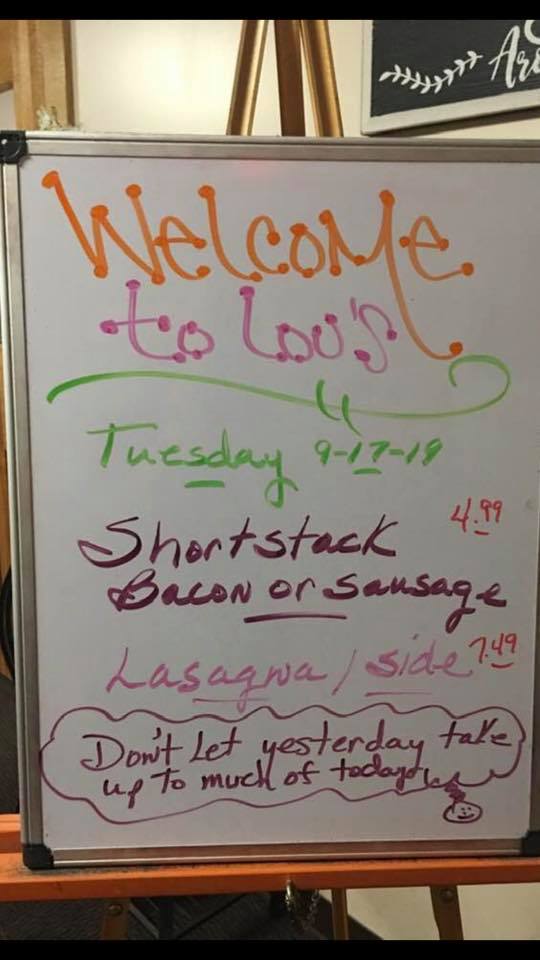 Aro
Welcome
to Lou's
Tuesday 9-17-19
Shortstack 4.99
Bacon or Sausage
Lasagna / side 7.49
Don't Let yesterday take
up to much of today